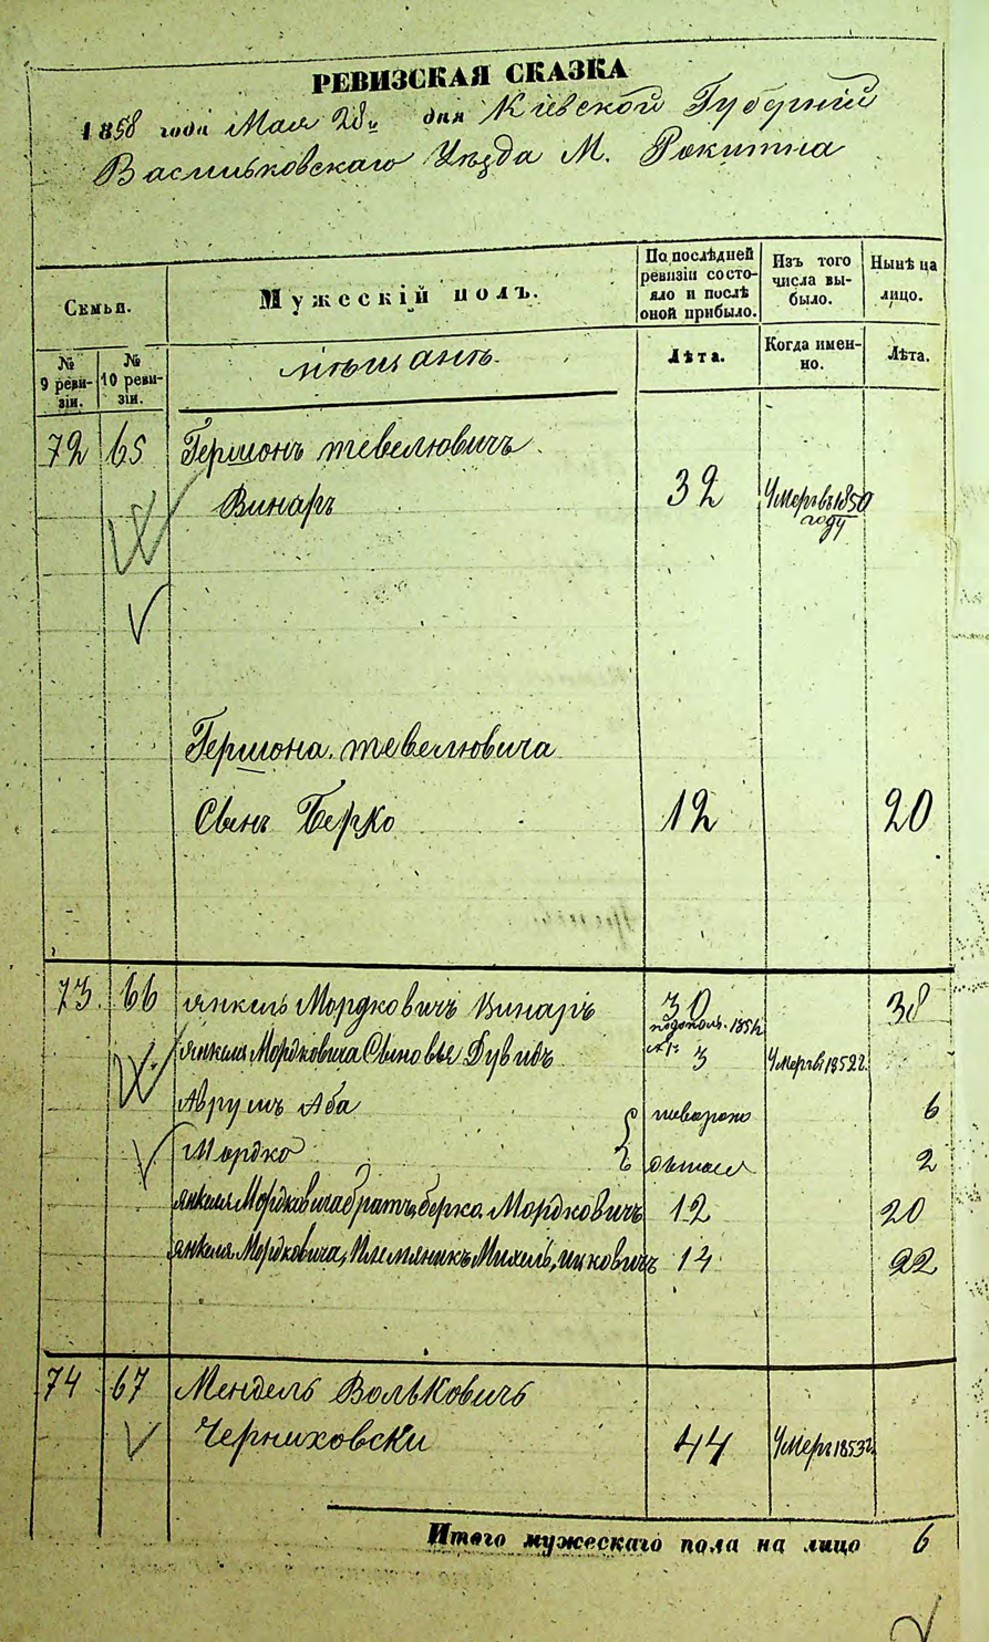 РЕВИЗСКАЯ СКАЗКА
1858 года Мая 28 дня Кіевской Губерніи
Васильковскаго Уѣзда М. Рокитна
Семьи.
Мужескій полъ.
По послѣдней ревизіи состояло и послѣ оной прибыло.
Изъ того числа выбыло.
Нынѣ на лицо.
№ 9 ревизіи.
№ 10 ревизіи.
мѣщанъ.
Лѣта.
Когда именно.
Лѣта.
72 65 Гершонъ тевелювичъ
Винаръ 32 Умеръ въ 1850 году
Гершона тевелювича
Сынъ Берко 12 20
73. 66 янкель Мордковичъ Винаръ 30 38
янкиля Мордковича Сыновья Дувидъ 3 Умеръ 1852 г.
Аврумъ Аба 6
Мордко 2
янкиля Мордковича братъ берко Мордковичъ 12 20
янкиля Мордковича, Племяникъ Михель, ицковичъ 14 22
74 67 Мендель Вольковичъ
Черниховски 44 Умеръ 1853 г.
Итого мужескаго пола на лицо 6